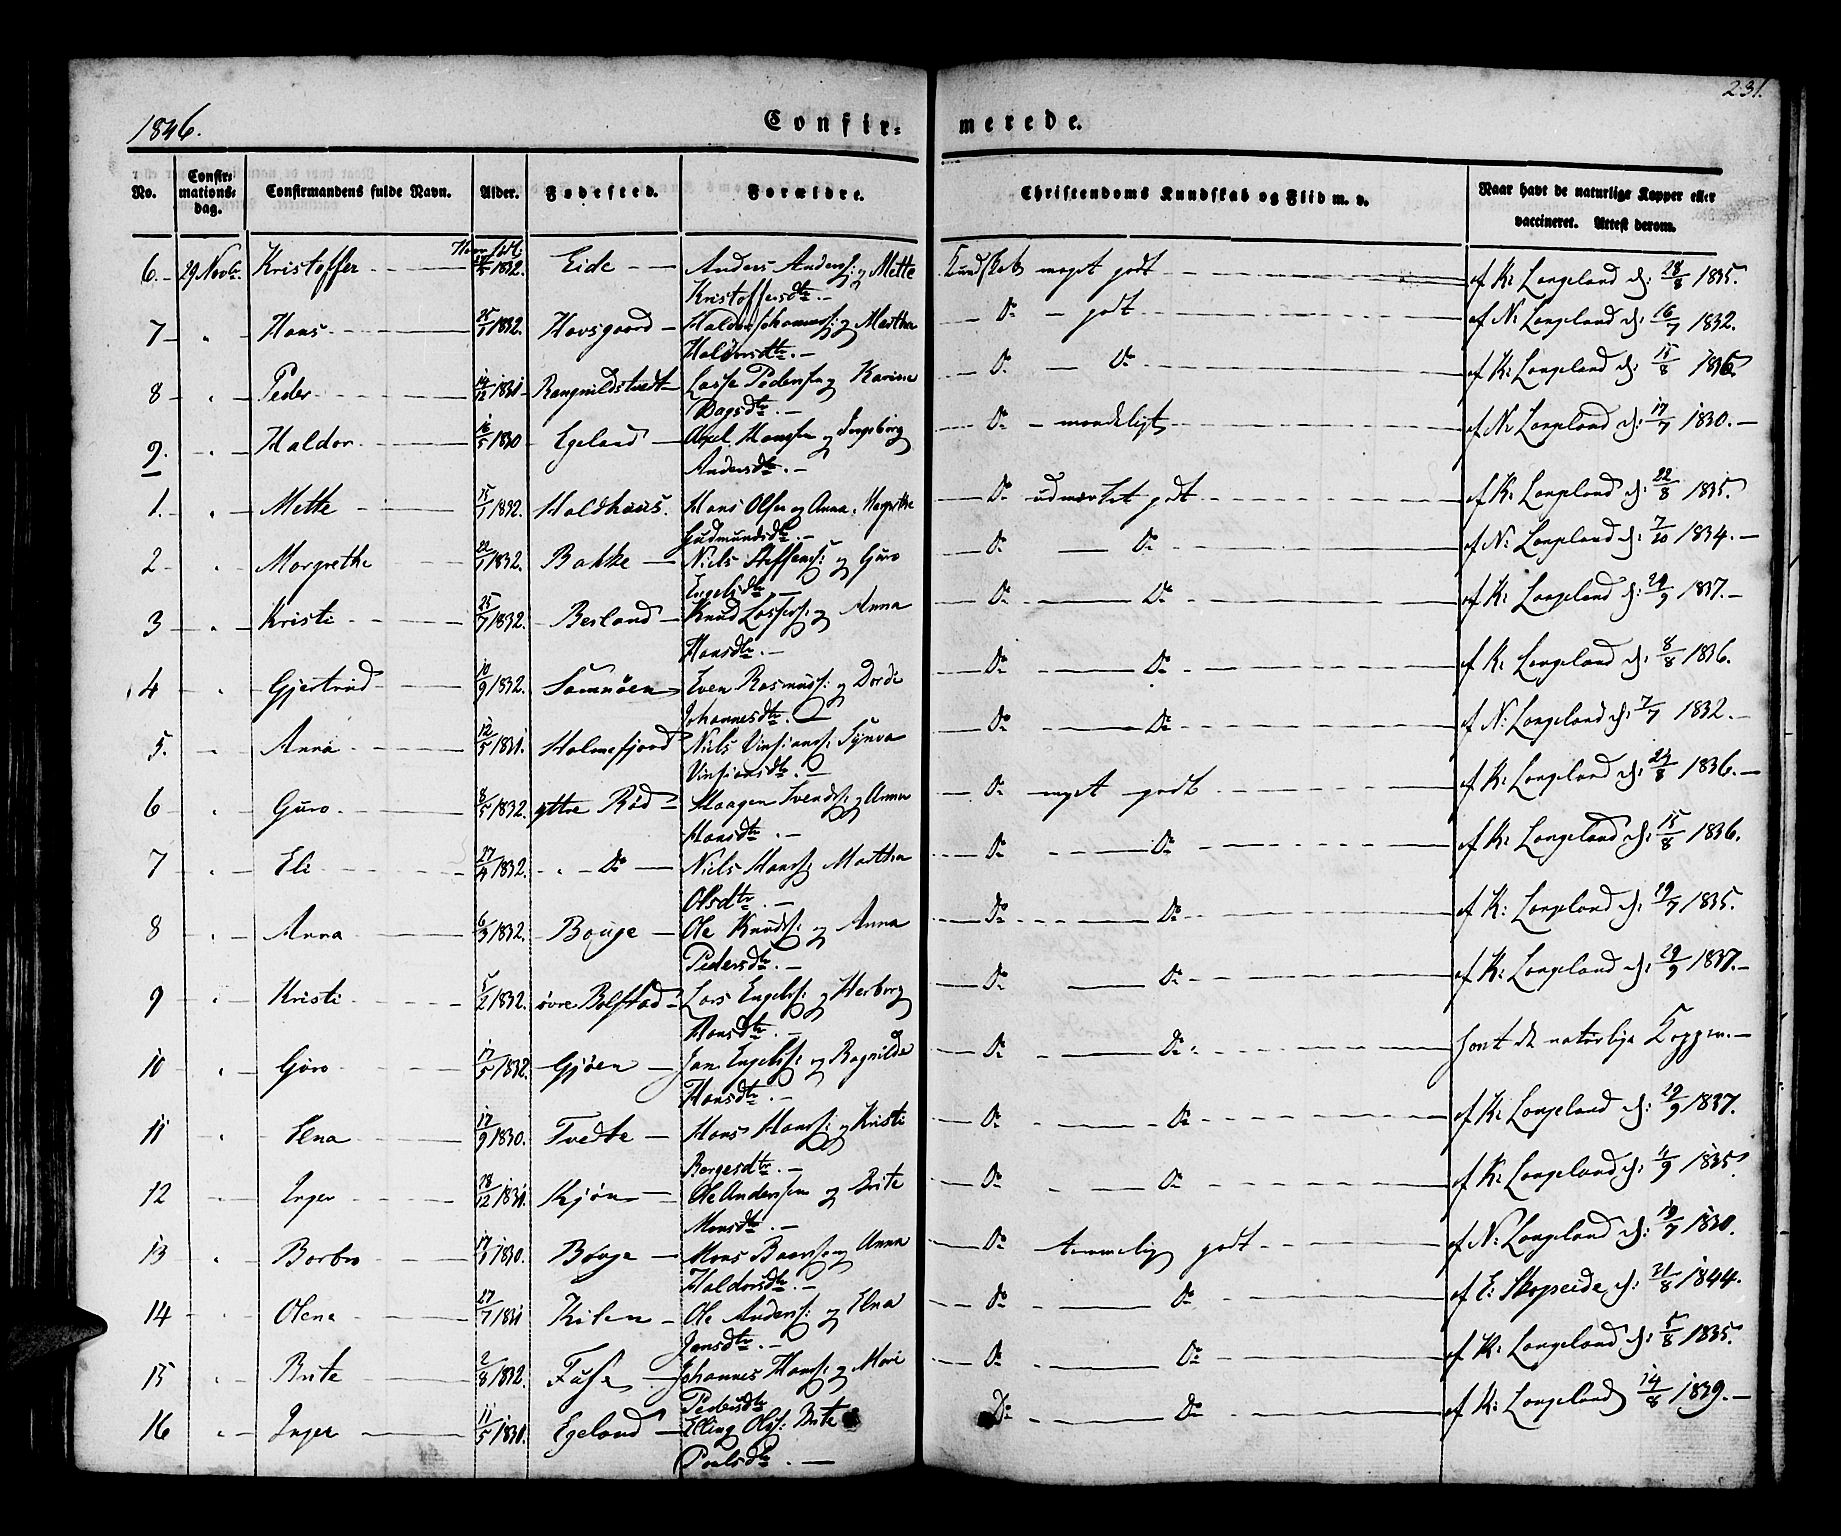 1846.
Confir-
merede.
231.
No.
Confir-
mations-
dag.
Confirmandens fulde Navn.
Alder.
Fødested.
Forældre.
Christendoms Kundskab og Flid m. v.
Naar havt de naturlige Kopper eller
vaccineret. Attest derom.
6. 29 Novbr. Kristoffer 1832. Eide Anders Anders: og Mette Kundskab meget godt af K: Langeland d: 28/8 1835.
Kristoffersdtr.
7 " Hans 25/7 1832. Havsgaard Haldor Johanness: og Martha Do godt af N: Langeland d: 16/7 1832.
Haldorsdtr.
8 " Peder 14/12 1831 Rangnildstvedt Lasse Pedersen og Karina Do Do af K: Langeland d: 15/8 1836
Bagsdtr.
9. " Haldor 16/5 1830 Egeland Hansen og Ingeborg Do maadeligt af N: Langeland d: 17/7 1830.
Andersdtr.
1. " Mette 15/7 1832. Holdhuus. Hans Olsen og Anna Margrethe Do udmærket godt af K: Langeland d: 22/8 1835.
Gudmundsdtr.
2 " Margrethe 22/7 1832. Bakke Niels Steffens: og Guro Do Do af N: Langeland d: 7/10 1834.
Engelsdtr
3 " Kristi 25/7 1832. Berland Knud Lasses: og Anna Do Do af K: Langeland d: 29/9 1837.
Hansdtr.
4 " Gjertrud 10/9 1832. Samnøen Even Rasmuss: og Dorde Do Do af K: Langeland d: 8/8 1836.
Johannesdtr.
5. " Anna 12/5 1831. Holmefjord Niels Vinsians: Synva Do Do af N: Langeland d: 7/7 1832.
Vinsiansdtr.
6 " Guro 8/5 1832. yttre Rød Haagen Svends: og Anna Do meget godt af K: Langeland d: 24/8 1836.
Hansdtr.
7 " Eli 27/4 1832. " Do Niels Hans: Martha Do Do af K: Langeland d: 15/8 1836.
Olsdtr.
8 " Anna 6/3 1832. Bouge Ole Knuds: og Anna Do Do af K: Langeland d: 29/7 1835.
Pedersdtr.
9 " Kristi 5/2 1832. øvre Bolstad Lars Engels: og Herborg Do Do af K: Langeland d: 29/9 1837.
Hansdtr.
10 " Guro 17/5 1832. Gjøen Jan Engels: og Ragnilde Do Do havt de naturlige Kopper.
Hansdtr.
11 " Elna 17/9 1830. Tvedte Hans Hans: og Kristi Do Do af K: Langeland d: 29/9 1837.
Børgesdtr.
12 Inger 28/12 1831. Kjøn Ole Andersen og Brite Do Do af K: Langeland d: 4/9 1835
Monsdtr.
13 " Barbro 1830. Bouge Mons og Anna Do temmelig godt af N: Langeland d: 19/7 1830.
Haldorsdtr.
14 Olena 27/7 1831 Kilen Ole Anders: og Elna Do Do af E: Skogseide d: 21/8 1844.
Jansdtr.
15 " Brite 2/8 1832. Fuse Johannes Hans: og Mari Do Do af K: Langeland d: 5/8 1835.
Pedersdtr
16 " Inger 11/5 1831. Egeland Elling Ols: Brite Do Do af K: Langeland 14/8 1839.
Poulsdtr.